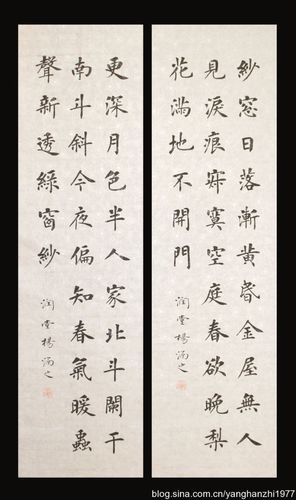 紗窓日落漸黃昏金屋無人
見淚痕寂寞空庭春欲晚梨
花滿地不開門
潤堂楊之
更深月色半人家北斗闌干
南斗斜今夜偏知春氣暖蟲
聲新透綠窗紗
潤堂楊之
blog.sina.com.cn/yanghanzhi1977